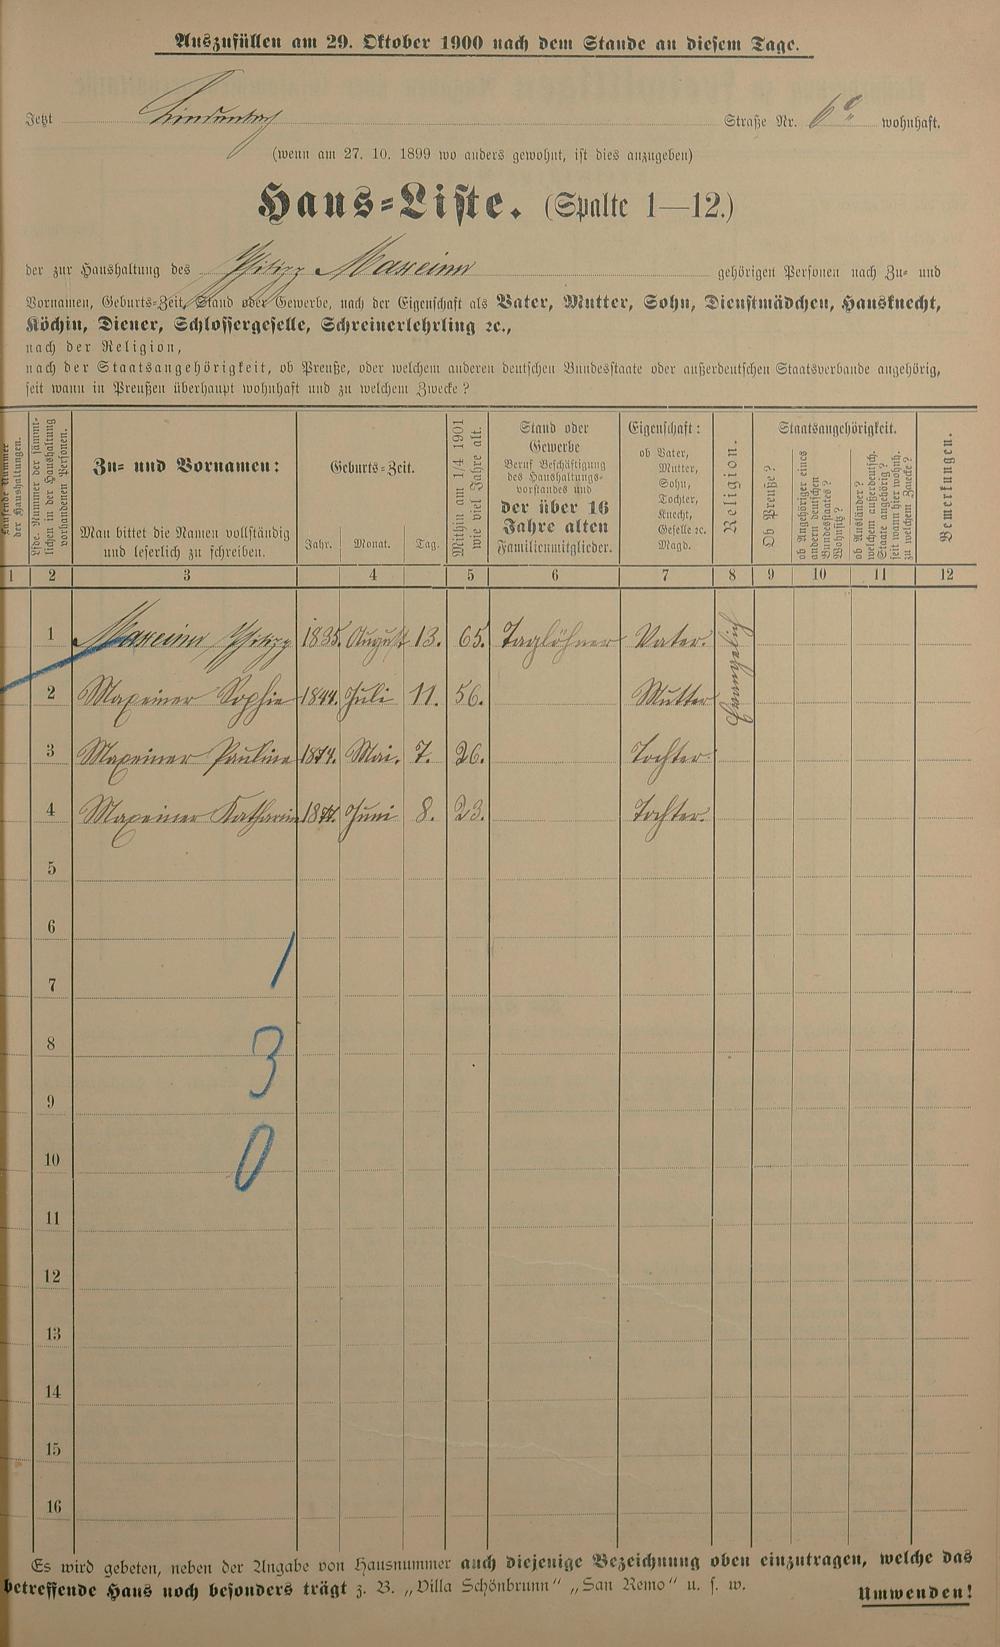 Auszufüllen am 29. Oktober 1900 nach dem Stande an diesem Tage.
Jetzt Lindenbach Straße Nr. 6a wohnhaft.
(wenn am 27. 10. 1899 wo anders gewohnt, ist dies anzugeben)
Haus-Liste. (Spalte 1—12.)
der zur Haushaltung des Philipp Maxeiner gehörigen Personen nach Zu- und
Vornamen, Geburts-Zeit, Stand oder Gewerbe, nach der Eigenschaft als Vater, Mutter, Sohn, Dienstmädchen, Hausknecht,
Köchin, Diener, Schlossergeselle, Schreinerlehrling ꝛc.,
nach der Religion,
nach der Staatsangehörigkeit, ob Preuße, oder welchem anderen deutschen Bundesstaate oder außerdeutschen Staatsverbande angehörig,
seit wann in Preußen überhaupt wohnhaft und zu welchem Zwecke?
Laufende Nummer
der Haushaltungen.
Lfde. Nummer der sämmt-
lichen in der Haushaltung
vorhandenen Personen.
Zu- und Vornamen:
Man bittet die Namen vollständig
und leserlich zu schreiben.
Geburts-Zeit.
Jahr. Monat. Tag.
Mithin am 1/4 1901
wie viel Jahre alt.
Stand oder
Gewerbe
Beruf Beschäftigung
des Haushaltungs-
vorstandes und
der über 16
Jahre alten
Familienmitglieder.
Eigenschaft:
ob Vater,
Mutter,
Sohn,
Tochter,
Knecht,
Geselle ꝛc.
Magd.
Religion.
Staatsangehörigkeit.
Ob Preuße?
ob Angehöriger eines
andern deutschen
Bundesstaates?
Wohnsitz?
ob Ausländer?
welchem außerdeutsch.
Staate angehörig?
seit wann hier wohnh.
zu welchem Zwecke?
Bemerkungen.
1 2 3 4 5 6 7 8 9 10 11 12
1 Maxeiner Philipp 1835. August 13. 65. Taglöhner Vater. Evangelich
2 Maxeiner Sophie 1844. Juli 11. 56. Mutter
3 Maxeiner Pauline 1874. Mai. 7. 26. Tochter.
4 Maxeiner Katharine 1877. Juni 8. 23. Tochter.
5
6
1
7
8
3
9
10
0
11
12
13
14
15
16
Es wird gebeten, neben der Angabe von Hausnummer auch diejenige Bezeichnung oben einzutragen, welche das
betreffende Haus noch besonders trägt z. B. „Villa Schönbrunn" „San Remo" u. s. w.
Umwenden!